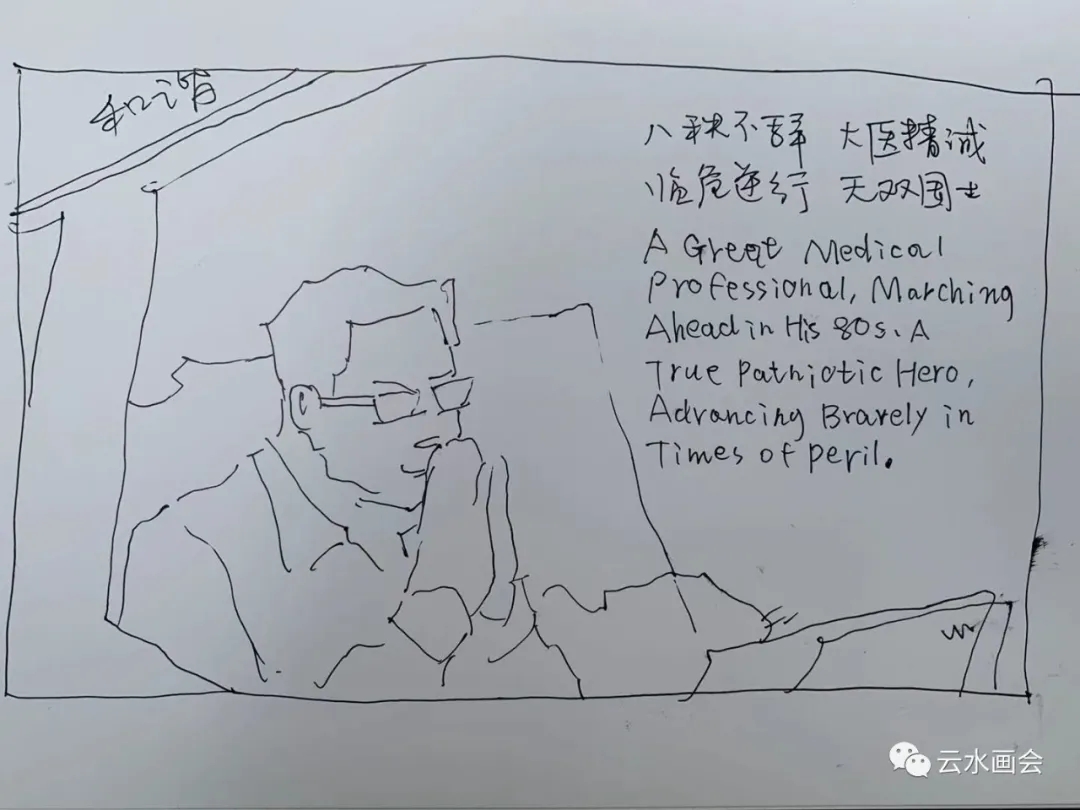 和谐
八秩不辞 大医精诚
临危逆行 无双国士
A Great Medical
Professional, Marching
Ahead in His 80s. A
True Patriotic Hero,
Advancing Bravely in
Times of Peril.
云水画会